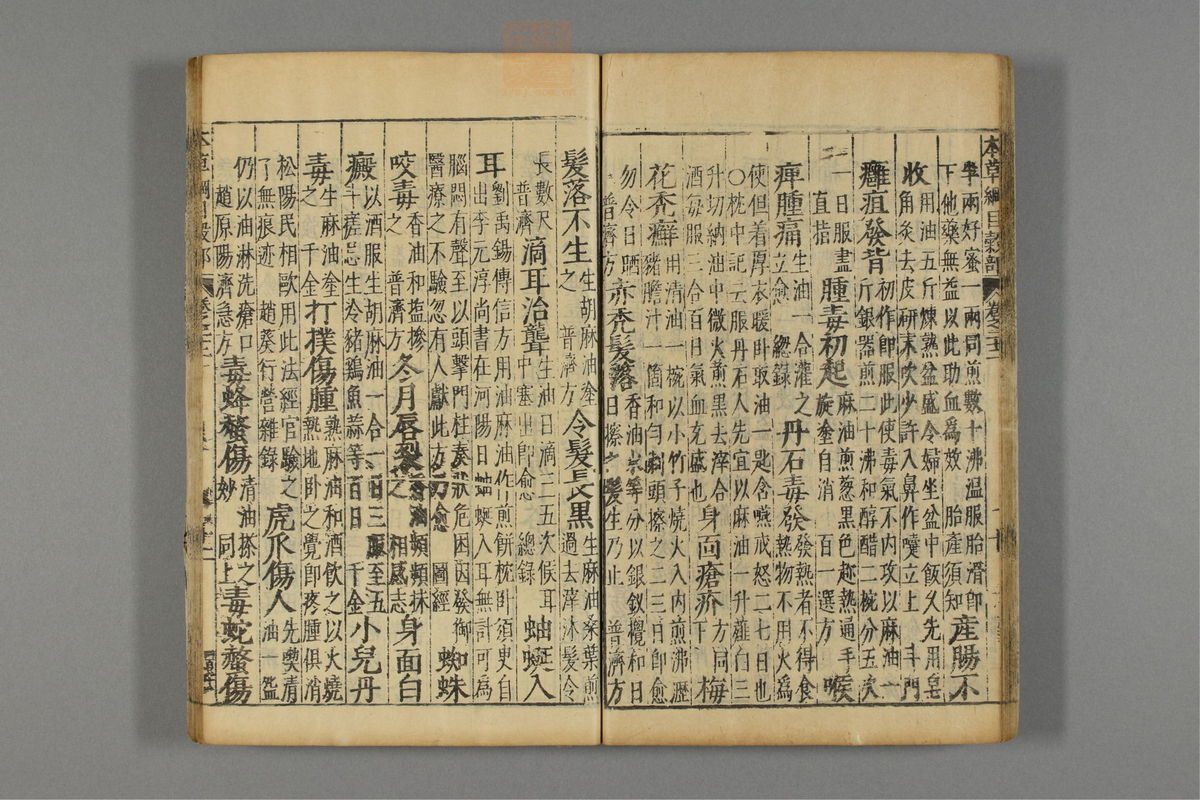 本草綱目穀部
卷之二十二
半兩好蜜一兩同煎數十沸温服胎滑卽
下他藥無益以此助血爲效 胎產須知
產腸不
收
用油五斤煉熟盆盛令婦坐盆中飯久先用皂
角炙去皮研末吹少許入鼻作嚏立上 斗門
癰疽發背
初作卽服此使毒氣不内攻以麻油一
斤銀器煎二十沸和醇醋二椀分五次
一日服盡
直指
腫毒初起
麻油煎葱黑色趂熱通手
旋塗自消 百一選方
喉
痺腫痛
生油一合灌之
立愈 總錄
丹石毒發
發熱者不得食
熱物不用火爲
使但着厚衣暖卧取油一匙含嚥戒怒二七日也
○枕中記云服丹石人先宜以麻油一升薤白三
升切納油中微火煎黑去滓合
酒每服三合百日氣血充盛也
身面瘡疥
方同下
梅
花禿癬
用清油一椀以小竹子燒火入内煎沸瀝
猪膽汁一箇和勻剃頭擦之二三日卽愈
勿令日晒
普濟方
赤禿髮落
香油水等分以銀釵攪和日
日擦之髮生乃止 普濟方
髮落不生
生胡麻油塗
之 普濟方
令髮長黑
生麻油桑葉煎
過去滓沐髮令
長數尺
普濟
滴耳治聾
生油日滴三五次候耳
中塞出卽愈 總錄
蚰蜒入
耳
劉禹錫傳信方用油麻油作煎餅枕卧須臾自
出李元淳尚書在河陽日蚰蜒入耳無計可爲
腦悶有聲至以頭擊門柱奏狀危困因發御
醫療之不驗忽有人獻此方乃愈 圖經
蜘蛛
咬毒
香油和塩摻
之 普濟方
冬月唇裂
香油頻頻抹
之 相感志
身面白
癜
以酒服生胡麻油一合一日三服至五
斗瘥忌生冷猪鷄魚蒜等百日 千金
小兒丹
毒
生麻油塗
之 千金
打撲傷腫
熟麻油和酒飲之以火燒
熱地卧之覺卽疼腫俱消
松陽民相毆用此法經官驗之
了無痕迹 趙葵行營雜錄
虎爪傷人
先喫清
油一盌
仍以油淋洗瘡口
趙原陽濟急方
毒蜂螫傷
清油搽之
妙 同上
毒蛇螫傷